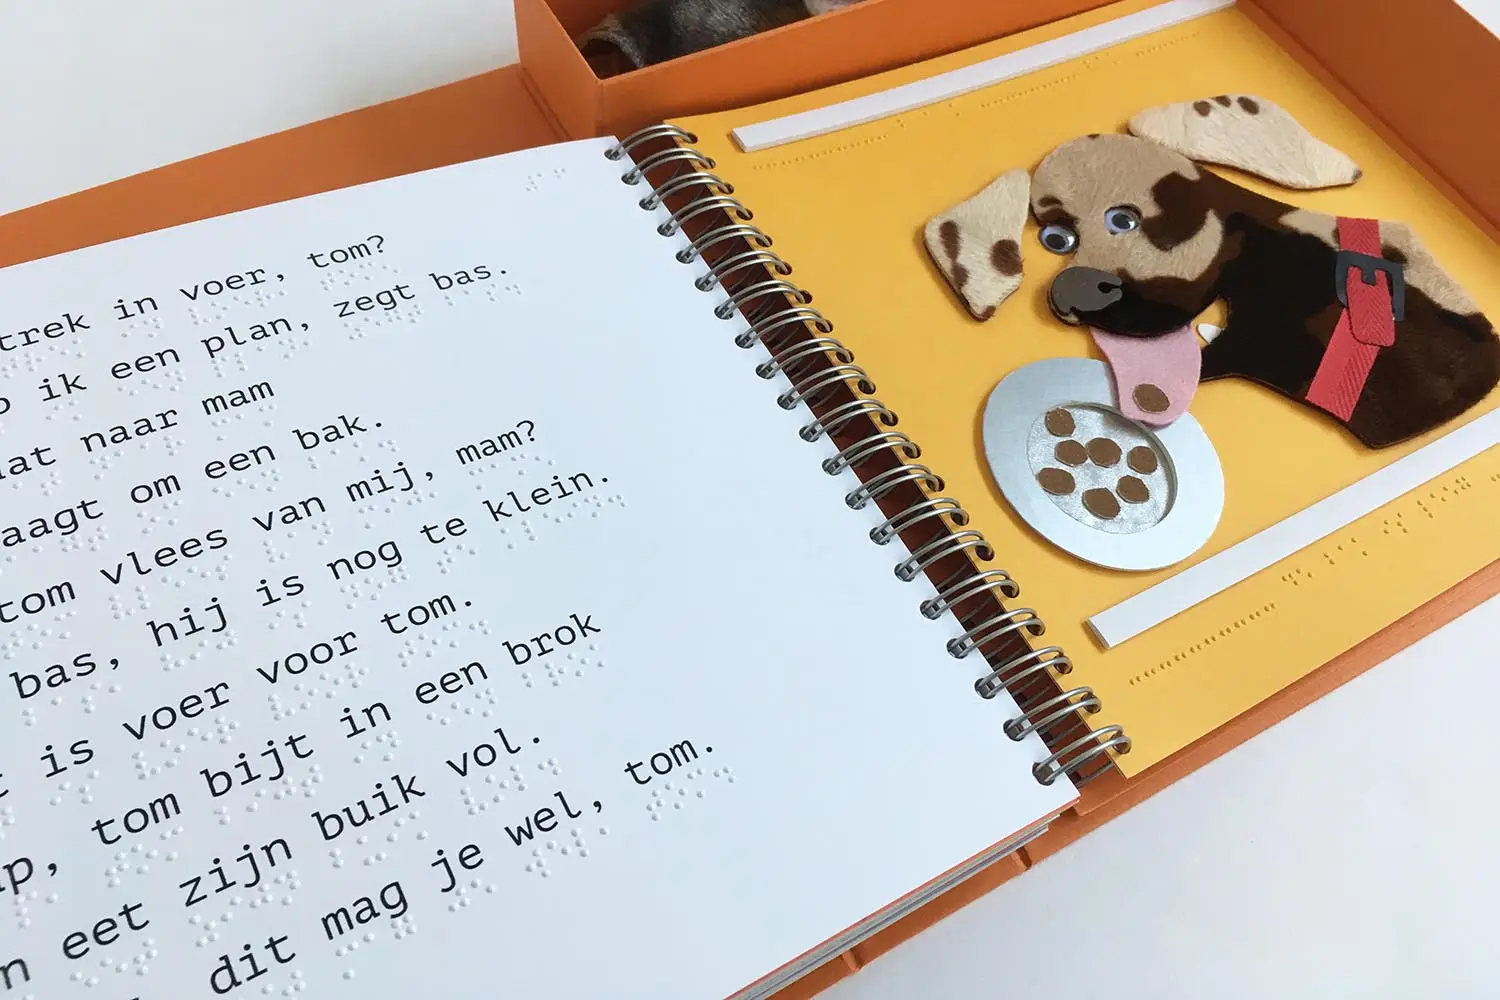 trek in voer, tom?
ik een plan, zegt bas.
naar mam
om een bak.
tom vlees van mij, mam?
bas, hij is nog te klein.
is voer voor tom.
tom bijt in een brok
eet zijn buik vol.
dit mag je wel, tom.